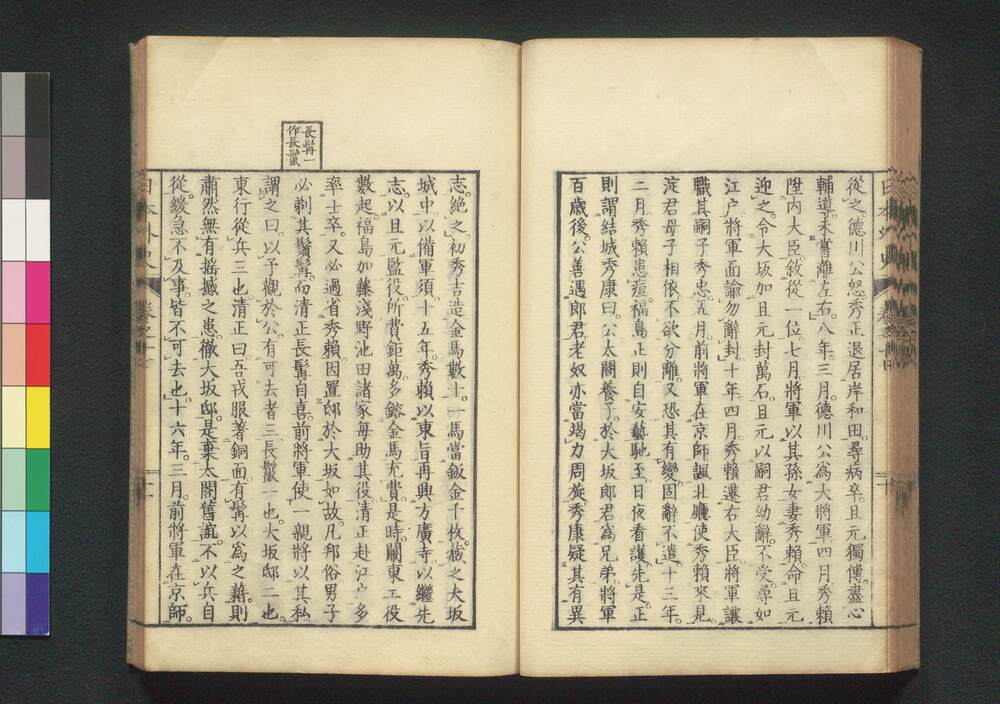 從之德川公怒秀正退居岸和田尋病卒且元獨傅盡心
輔導未嘗離左右八年三月德川公爲大將軍四月秀賴
陞內大臣敘從一位七月將軍以其孫女妻秀賴命且元
迎之令大坂加且元封萬石且元以嗣君幼辭不受尋如
江户將軍面諭勿辭封十年四月秀賴遷右大臣將軍讓
職其嗣子秀忠五月前將軍在京師諷北廳使秀賴來見
淀君母子相依不欲分離又恐其有變固辭不遣十三年
二月秀賴患痘福島正則自安藝馳至日夜看護先是正
則謂結城秀康曰公太閤養子於大坂郎君爲兄弟將軍
百歲後公善遇郎君老奴亦當竭力周旋秀康疑其有異
志絕之初秀吉造金馬數十一馬當鈑金千枚藏之大坂
城中以備軍須十五年秀賴以東旨再興方廣寺以繼先
志以且元監役所費鉅萬多鎔金馬充費是時關東工役
數起福島加藤淺野池田諸家每助其役清正赴江户多
率士卒又必過省秀賴因置邸於大坂如故凡邦俗男子
必剃其鬚髯而清正長髯自喜前將軍使一親將以其私
謂之曰以予觀於公有可去者三長鬣一也大坂邸二也
東行從兵三也清正曰吾戎服著銅面有髯以爲之藉則
肅然無有搖撼之患徹大坂邸是棄太閤舊誼不以兵自
從緩急不及事皆不可去也十六年三月前將軍在京師
長髯一
作長鬣
日本外史
卷之十